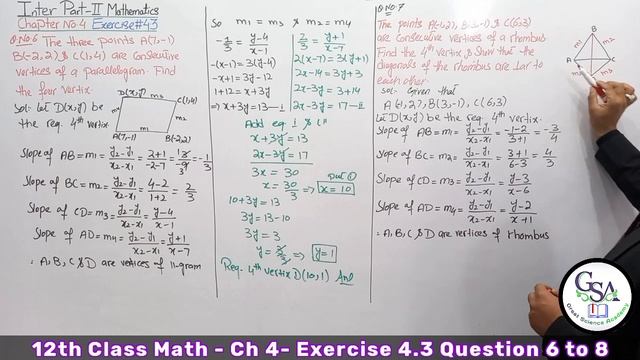 Inter Part-II Mathematics
Chapter No.4 Exercise #4.3
Q.No.6 The three points A(7,-1)
B(-2,2) & C(1,4) are consecutive
vertices of a parallelogram. Find
the four vertex.
Sol: Let D(x,y) be
the req. 4th vertix.
D(x,y) m3 C(1,4)
m4 m2
A(7,-1) m1 B(-2,2)
Slope of AB = m1 = y2-y1/x2-x1 = 2+1/-2-7 = 3/-9 = -1/3
Slope of BC = m2 = y2-y1/x2-x1 = 4-2/1+2 = 2/3
Slope of CD = m3 = y2-y1/x2-x1 = y-4/x-1
Slope of AD = m4 = y2-y1/x2-x1 = y+1/x-7
∵ A,B,C & D are vertices of 11-gram
So m1 = m3 & m2 = m4
-1/3 = y-4/x-1
-(x-1) = 3(y-4)
-x+1 = 3y-12
1+12 = x+3y
⇒ x+3y = 13 — I
2/3 = y+1/x-7
2(x-7) = 3(y+1)
2x-14 = 3y+3
2x-3y = 3+14
2x-3y = 17 — II
Add eq I & II
x+3y = 13
2x-3y = 17
3x = 30
x = 30/3 ⇒ x = 10
put I
10+3y = 13
3y = 13-10
3y = 3
y = 3/3 ⇒ y = 1
Req. 4th vertix D(10,1) Ans
Q.No.7
The points A(-1,2), B(3,-1) & C(6,3)
are consecutive vertices of a rhombus
Find the 4th vertix & Show that the
diagonals of the rhombus are ⊥ar to
each other.
Sol:- Given that
A(-1,2), B(3,-1), C(6,3)
Let D(x,y) be the req. 4th vertix
Slope of AB = m1 = y2-y1/x2-x1 = -1-2/3+1 = -3/4
Slope of BC = m2 = y2-y1/x2-x1 = 3+1/6-3 = 4/3
Slope of CD = m3 = y2-y1/x2-x1 = y-3/x-6
Slope of AD = m4 = y2-y1/x2-x1 = y-2/x+1
∵ A,B,C & D are vertices of rhombus
B
m1 m2
A C
m3
GSA
Great Science Academy
12th Class Math - Ch 4- Exercise 4.3 Question 6 to 8